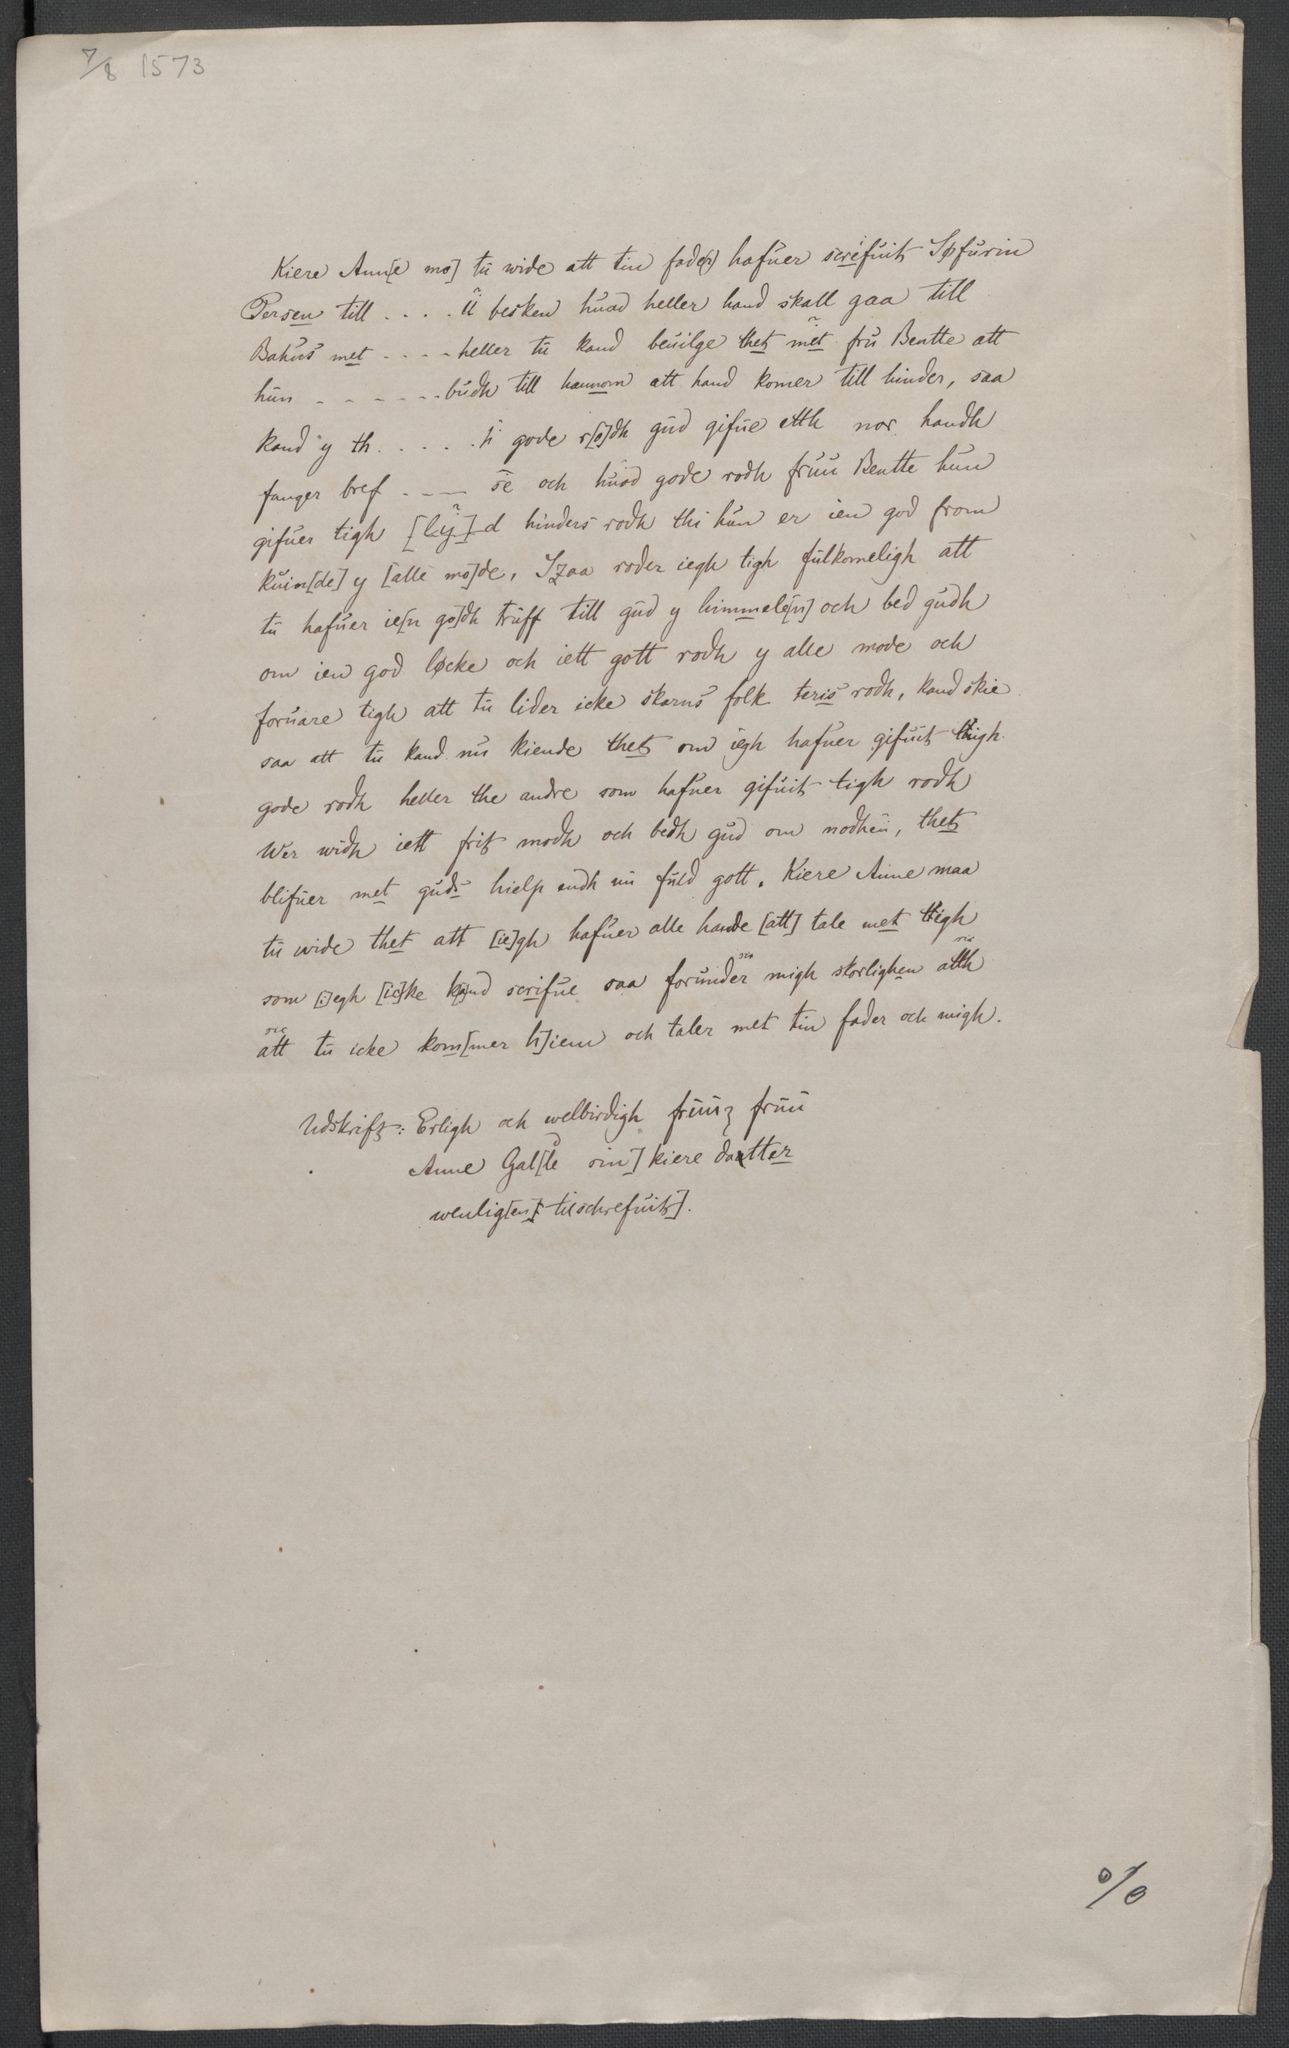 7/8 1573
Kiere Ann[e mo] tu wide att tin fade[r] hafuer screfuit Søfurin
Persen till . . . . ü besken huad heller hand skall gaa till
Bahus met - - - - heller tu kand beuilge thet met fru Bentte att
hun - - - - - - - budh till hannom att hand komer till hinder, saa
kand y th . . . . . ü gode r[o]dh gud gifue etth nor handh
fanger bref - - - se och huad gode rodh fruu Bentte hun
gifuer tigh [lÿ]d hinders rodh thi hun er ien god from
kuin[de] y [alle mo]de, Szaa roder iegh tigh fulkomeligh att
tu hafuer ie[n go]dh truff till gud y himmele[n] och bed gudh
om ien god løcke och iett gott rodh y alle mode och
foruare tigh att tu lider icke skarns folk teris rodh, kand skie
saa att tu kand nu kiende thet om iegh hafuer gifuit thigh
gode rodh heller the andre som hafuer gifuit tigh rodh
Wer widh iett frit modh och bedh gud om nodhen, thet
blifuer met guds hielp endh nu fuld gott. Kiere Anne maa
tu wide thet att [ie]gh hafuer alle hande [att] tale met thigh
som [i]egh [ic]ke k[a]nd scrifue saa forunder sic migh storlighen atth sic
sic att tu icke kom[mer h]iem och taler met tin fader och migh.
Udskrift: Erligh och welbirdigh fruuz fruu
Anne Gal[le sin] kiere daatter
wenlig[en] tilschrefuit].
o/o